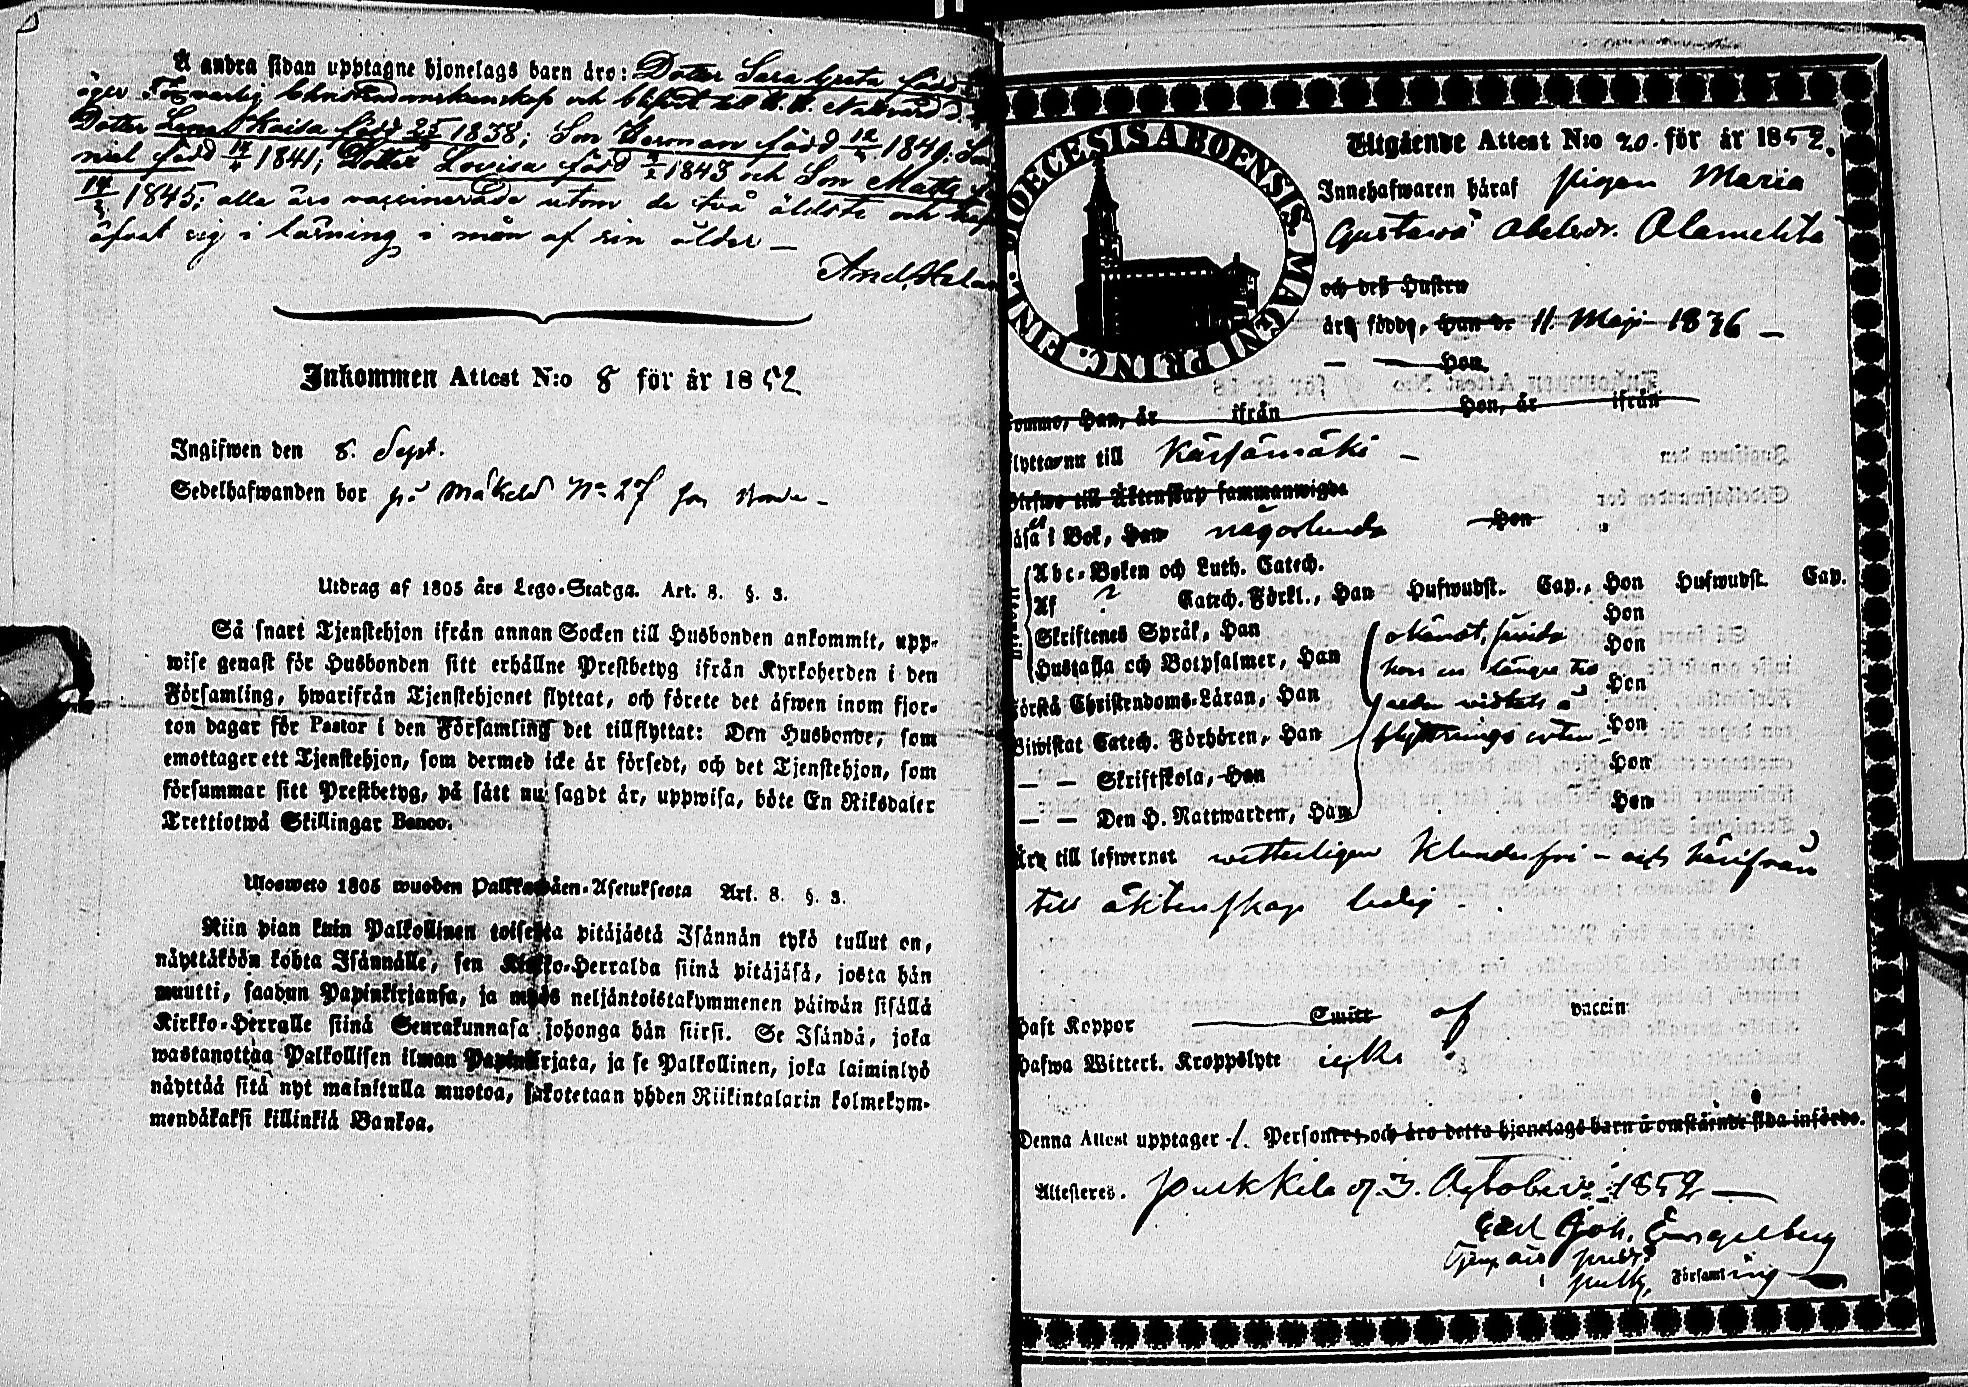 Å andra sidan upptagne hjonelags barn äro: Dotter Sara Greta född
äger Försvarlig Christendomskunskap och
Dotter Lena Kaisa född 25 1838; Son Herman född 12 1840;
niel född 14/4 1841; Dotter Lovisa född 1843 och Son Matts
14 1845; alla äro vaccinerade utom de två äldste och
öfvat sig i läsning i mån af sin ålder —
Inkommen Attest N:o 8 för år 1852
Ingifwen den 8. Sept.
Sedelhafwanden bor på Mäkelä No 27
Utdrag af 1805 års Lego-Stadga. Art. 8. §. 3.
Så snart Tjenstehjon ifrån annan Socken till Husbonden ankommit, upp-
wise genast för Husbonden sitt erhållne Prestbetyg ifrån Kyrkoherden i den
Församling, hwarifrån Tjenstehjonet flyttat, och förete det äfwen inom fjor-
ton dagar för Pastor i den Församling det tillflyttat: Den Husbonde, som
emottager ett Tjenstehjon, som dermed icke är försedt, och det Tjenstehjon, som
försummar sitt Prestbetyg, på sätt nu sagdt är, uppwisa, böte En Riksdaler
Trettiotwå Skillingar Banco.
Ulosweto 1805 wuoden Palkkawäen-Asetuksesta Art. 8. §. 3.
Niin pian kuin Palkollinen toisesta pitäjästä Isännän tykö tullut on,
näyttäköön kohta Isännälle, sen Kirkko-Herralda siinä pitäjäsä, josta hän
muutti, saadun Papinkirjansa, ja myös neljäntoistakymmenen päiwän sisällä
Kirkko-Herralle siinä Seurakunnasa johonga hän siirsi. Se Isändä, joka
wastanottaa Palkollisen ilman Papinkirjata, ja se Palkollinen, joka laiminlyö
näyttää sitä nyt mainitulla muotoa, sakotetaan yhden Riikintalarin kolmekym-
mendäkaksi killinkiä Bankoa.
DIOECESIS ABOENSIS. MAGNI PRINC. FINL.
Utgående Attest N:o 20. för år 1852.
Innehafwaren häraf pigan Maria
Gustava
och deß Hustru
är född, Han d. 11. Maji 1836 —
Hon
komne, Han, år ifrån Hon, år ifrån
flyttar nu till Kärsämäki —
Blefwo till Äktenskap sammanwigda
läsa i Bok, Han någorlunda Hon "
Abc-Boken och Luth. Catech.
Af ? Catech. Förkl., Han Hufwudst. Cap., Hon Hufwudst. Cap.
Skriftenes Språk, Han Hon
Hustafla och Botpsalmer, Han okändt, Hon
hon en längre tid
Förstå Christendoms-Läran, Han Hon
Biwistat Catech. Förhören, Han flyttnings Hon
— — Skriftskola, Han Hon
— — Den H. Nattwarden, Han Hon
Är till lefwernet wetterligen klanderfri — och härifrån
till äktenskap ledig —.
Haft Koppor Smitt af vaccin
Hafwa Witterl. Kroppslyte icke
Denna Attest upptager 1. Personer, och äro detta hjonelags barn å omstående sida införde.
Attesteres. Pulkkila d. 3. October 1852 —
Carl Joh. Engelberg
i Pulk. Församling